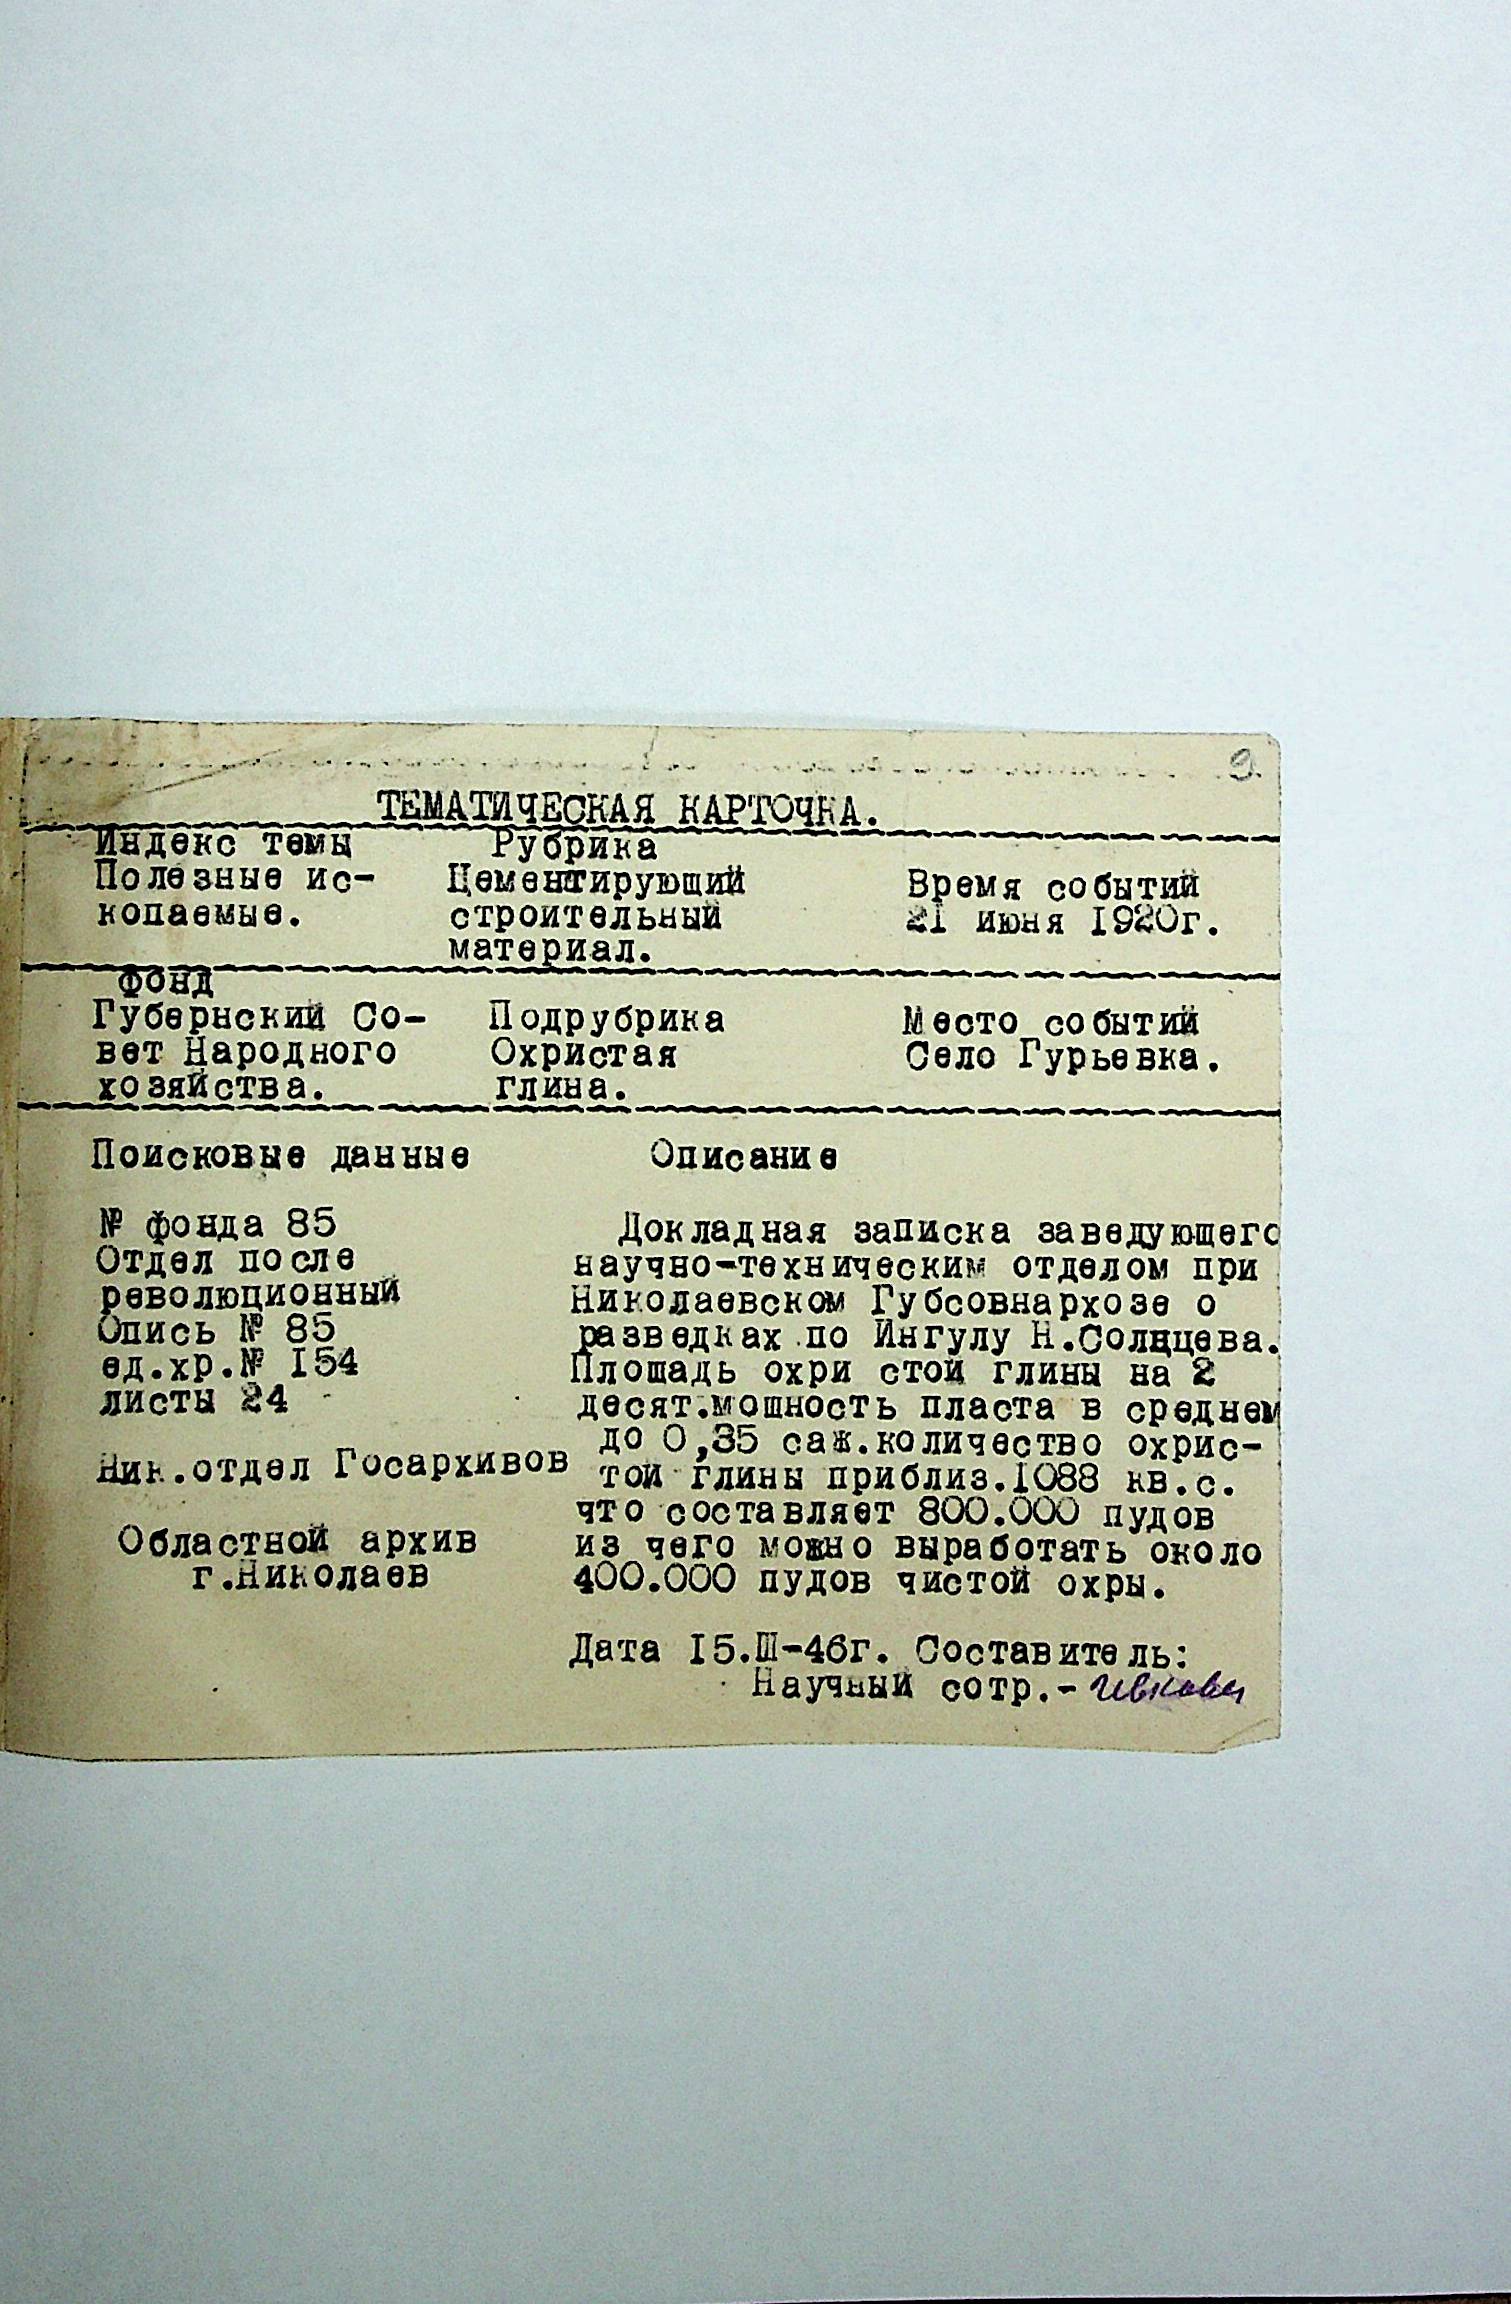 9.
ТЕМАТИЧЕСКАЯ КАРТОЧКА.
Индекс темы
Полезные ис-
копаемые.
Рубрика
Цементирующий
строительный
материал.
Время событий
21 июня 1920г.
Фонд
Губернский Со-
вет Народного
хозяйства.
Подрубрика
Охристая
глина.
Место событий
Село Гурьевка.
Поисковые данные
№ фонда 85
Отдел после
революционный
Опись № 85
ед.хр.№ 154
листы 24
Ник.отдел Госархивов
Областной архив
г.Николаев
Описание
Докладная записка заведующего
научно-техническим отделом при
Николаевском Губсовнархозе о
разведках по Ингулу Н.Солнцева.
Площадь охри стой глины на 2
десят.мошность пласта в среднем
до 0,35 саж.количество охрис-
той глины приблиз.1088 кв.с.
что составляет 800.000 пудов
из чего можно выработать около
400.000 пудов чистой охры.
Дата 15.III-46г. Составитель:
Научный сотр.-